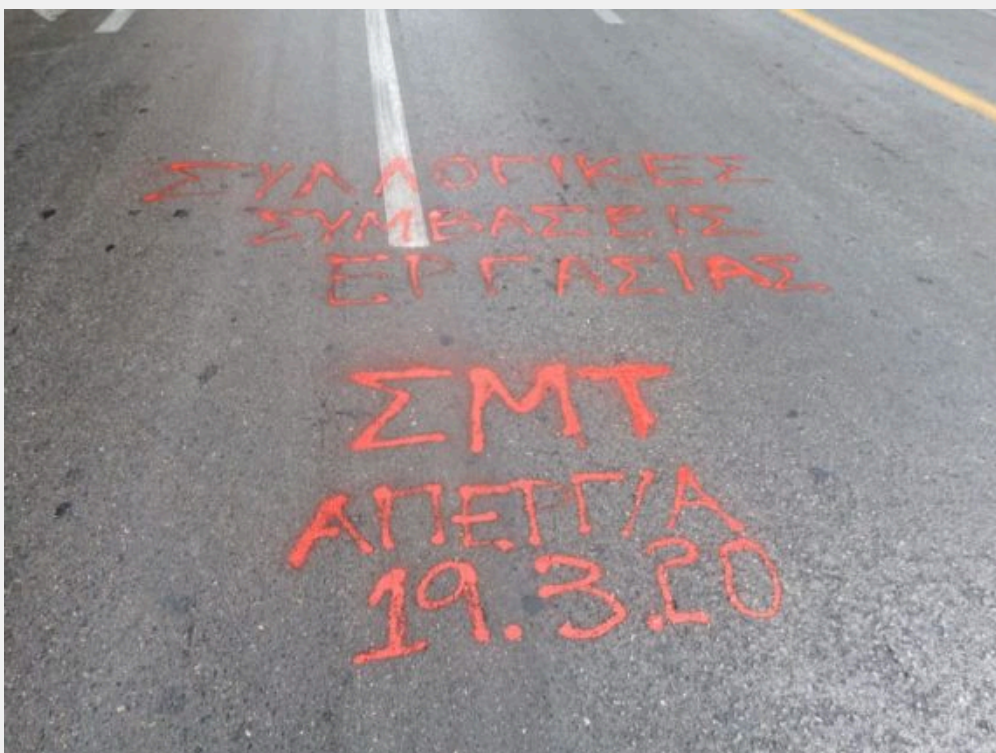 ΣΥΛΛΟΓΙΚΕΣ
ΣΥΜΒΑΣΕΙΣ
ΕΡΓΑΣΙΑΣ
ΣΜΤ
ΑΠΕΡΓΙΑ
19.3.20